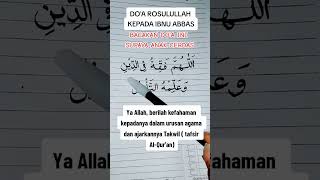 DO'A ROSULULLAH
KEPADA IBNU ABBAS
BACAKAN DO'A INI
SUPAYA ANAK CERDAS
اَللّٰهُمَّ فَقِّهْهُ فِى الدِّيْنِ
وَعَلِّمْهُ التَّأْوِيْلَ
Ya Allah, berilah kefahaman
kepadanya dalam urusan agama
dan ajarkannya Takwil ( tafsir
Al-Qur'an)